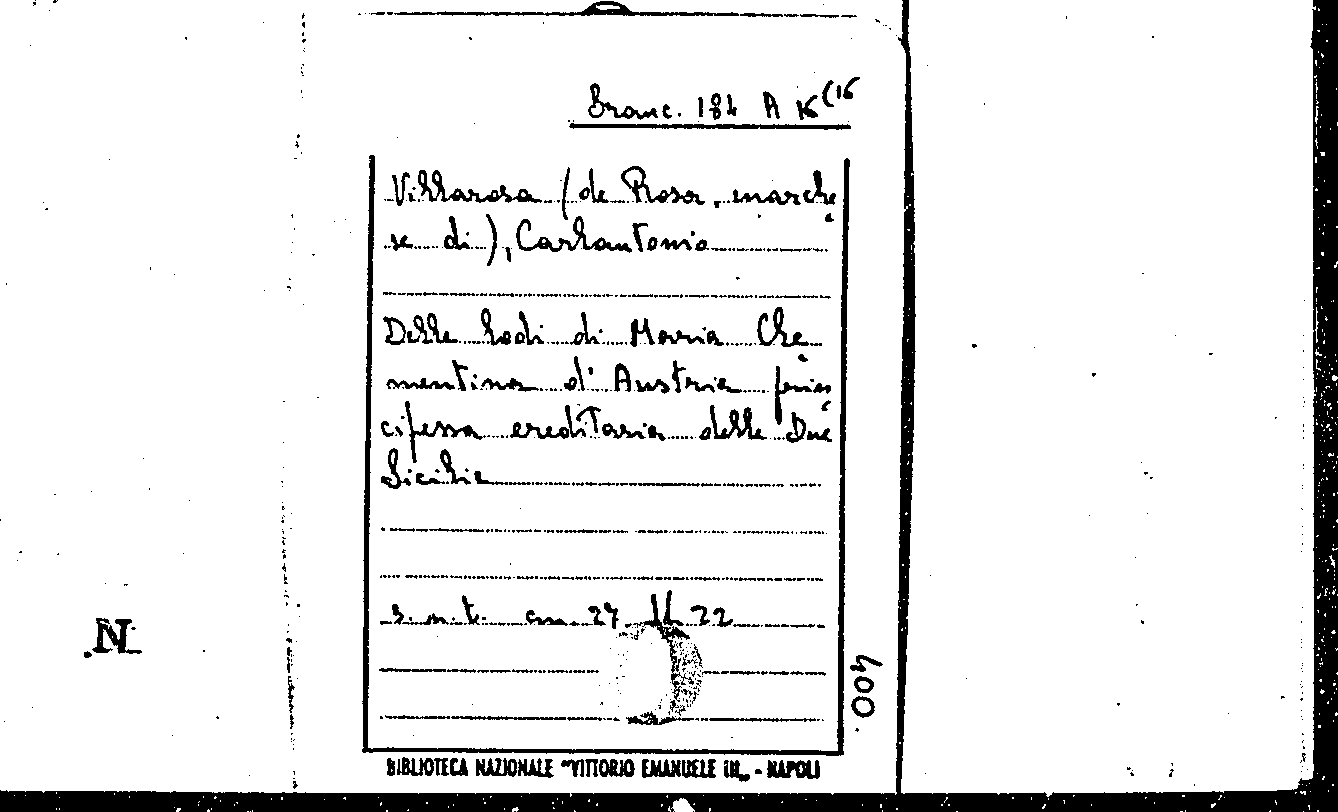 Branc. 184 A 16(16
Villarosa (de Rosa, marche
se di), Carlantonio
Delle lodi di Maria Cle
mentina d'Austria prin
cipessa ereditaria delle Due
Sicilie
s.n.t. cm. 27 22
400
N
BIBLIOTECA NAZIONALE "VITTORIO EMANUELE III„ - NAPOLI